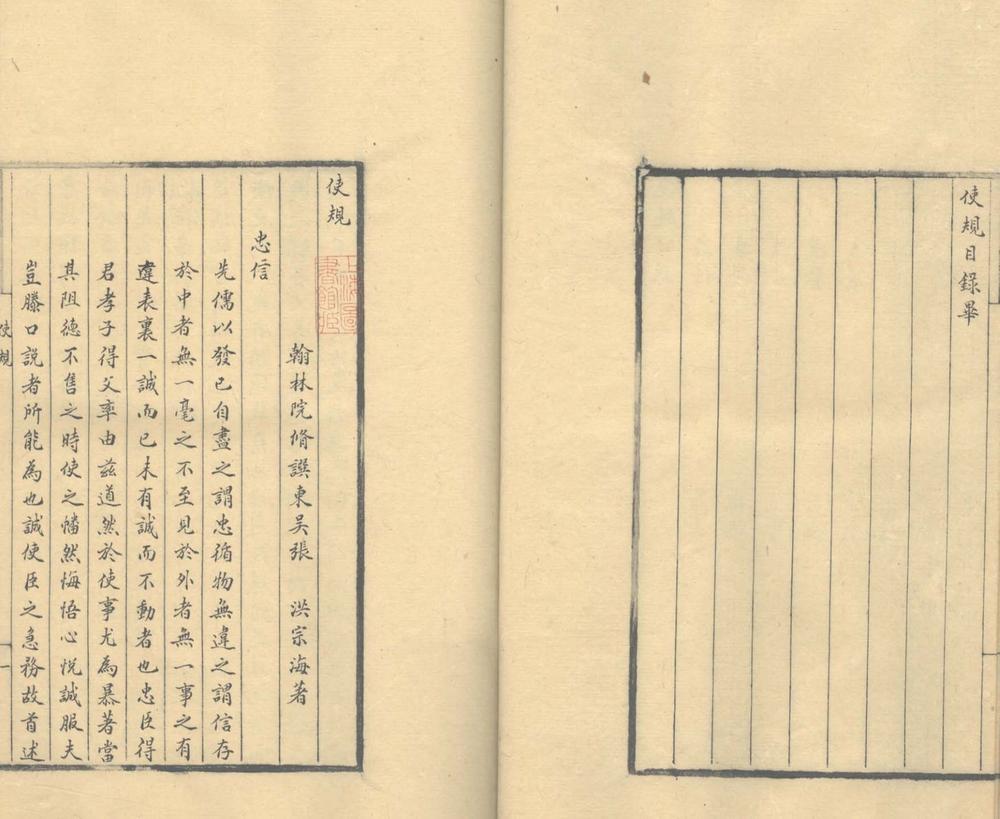 使規目錄畢
使規
上海圖書館藏
翰林院脩譔東吴張　洪宗海著
忠信
先儒以發已自盡之謂忠循物無違之謂信存
於中者無一毫之不至見於外者無一事之有
違表裏一誠而已未有誠而不動者也忠臣得
君孝子得父率由兹道然於使事尤為暴著當
其阻德不售之時使之幡然悔悟心悅誠服夫
豈滕口説者所能為也誠使臣之急務故首述
使規
一